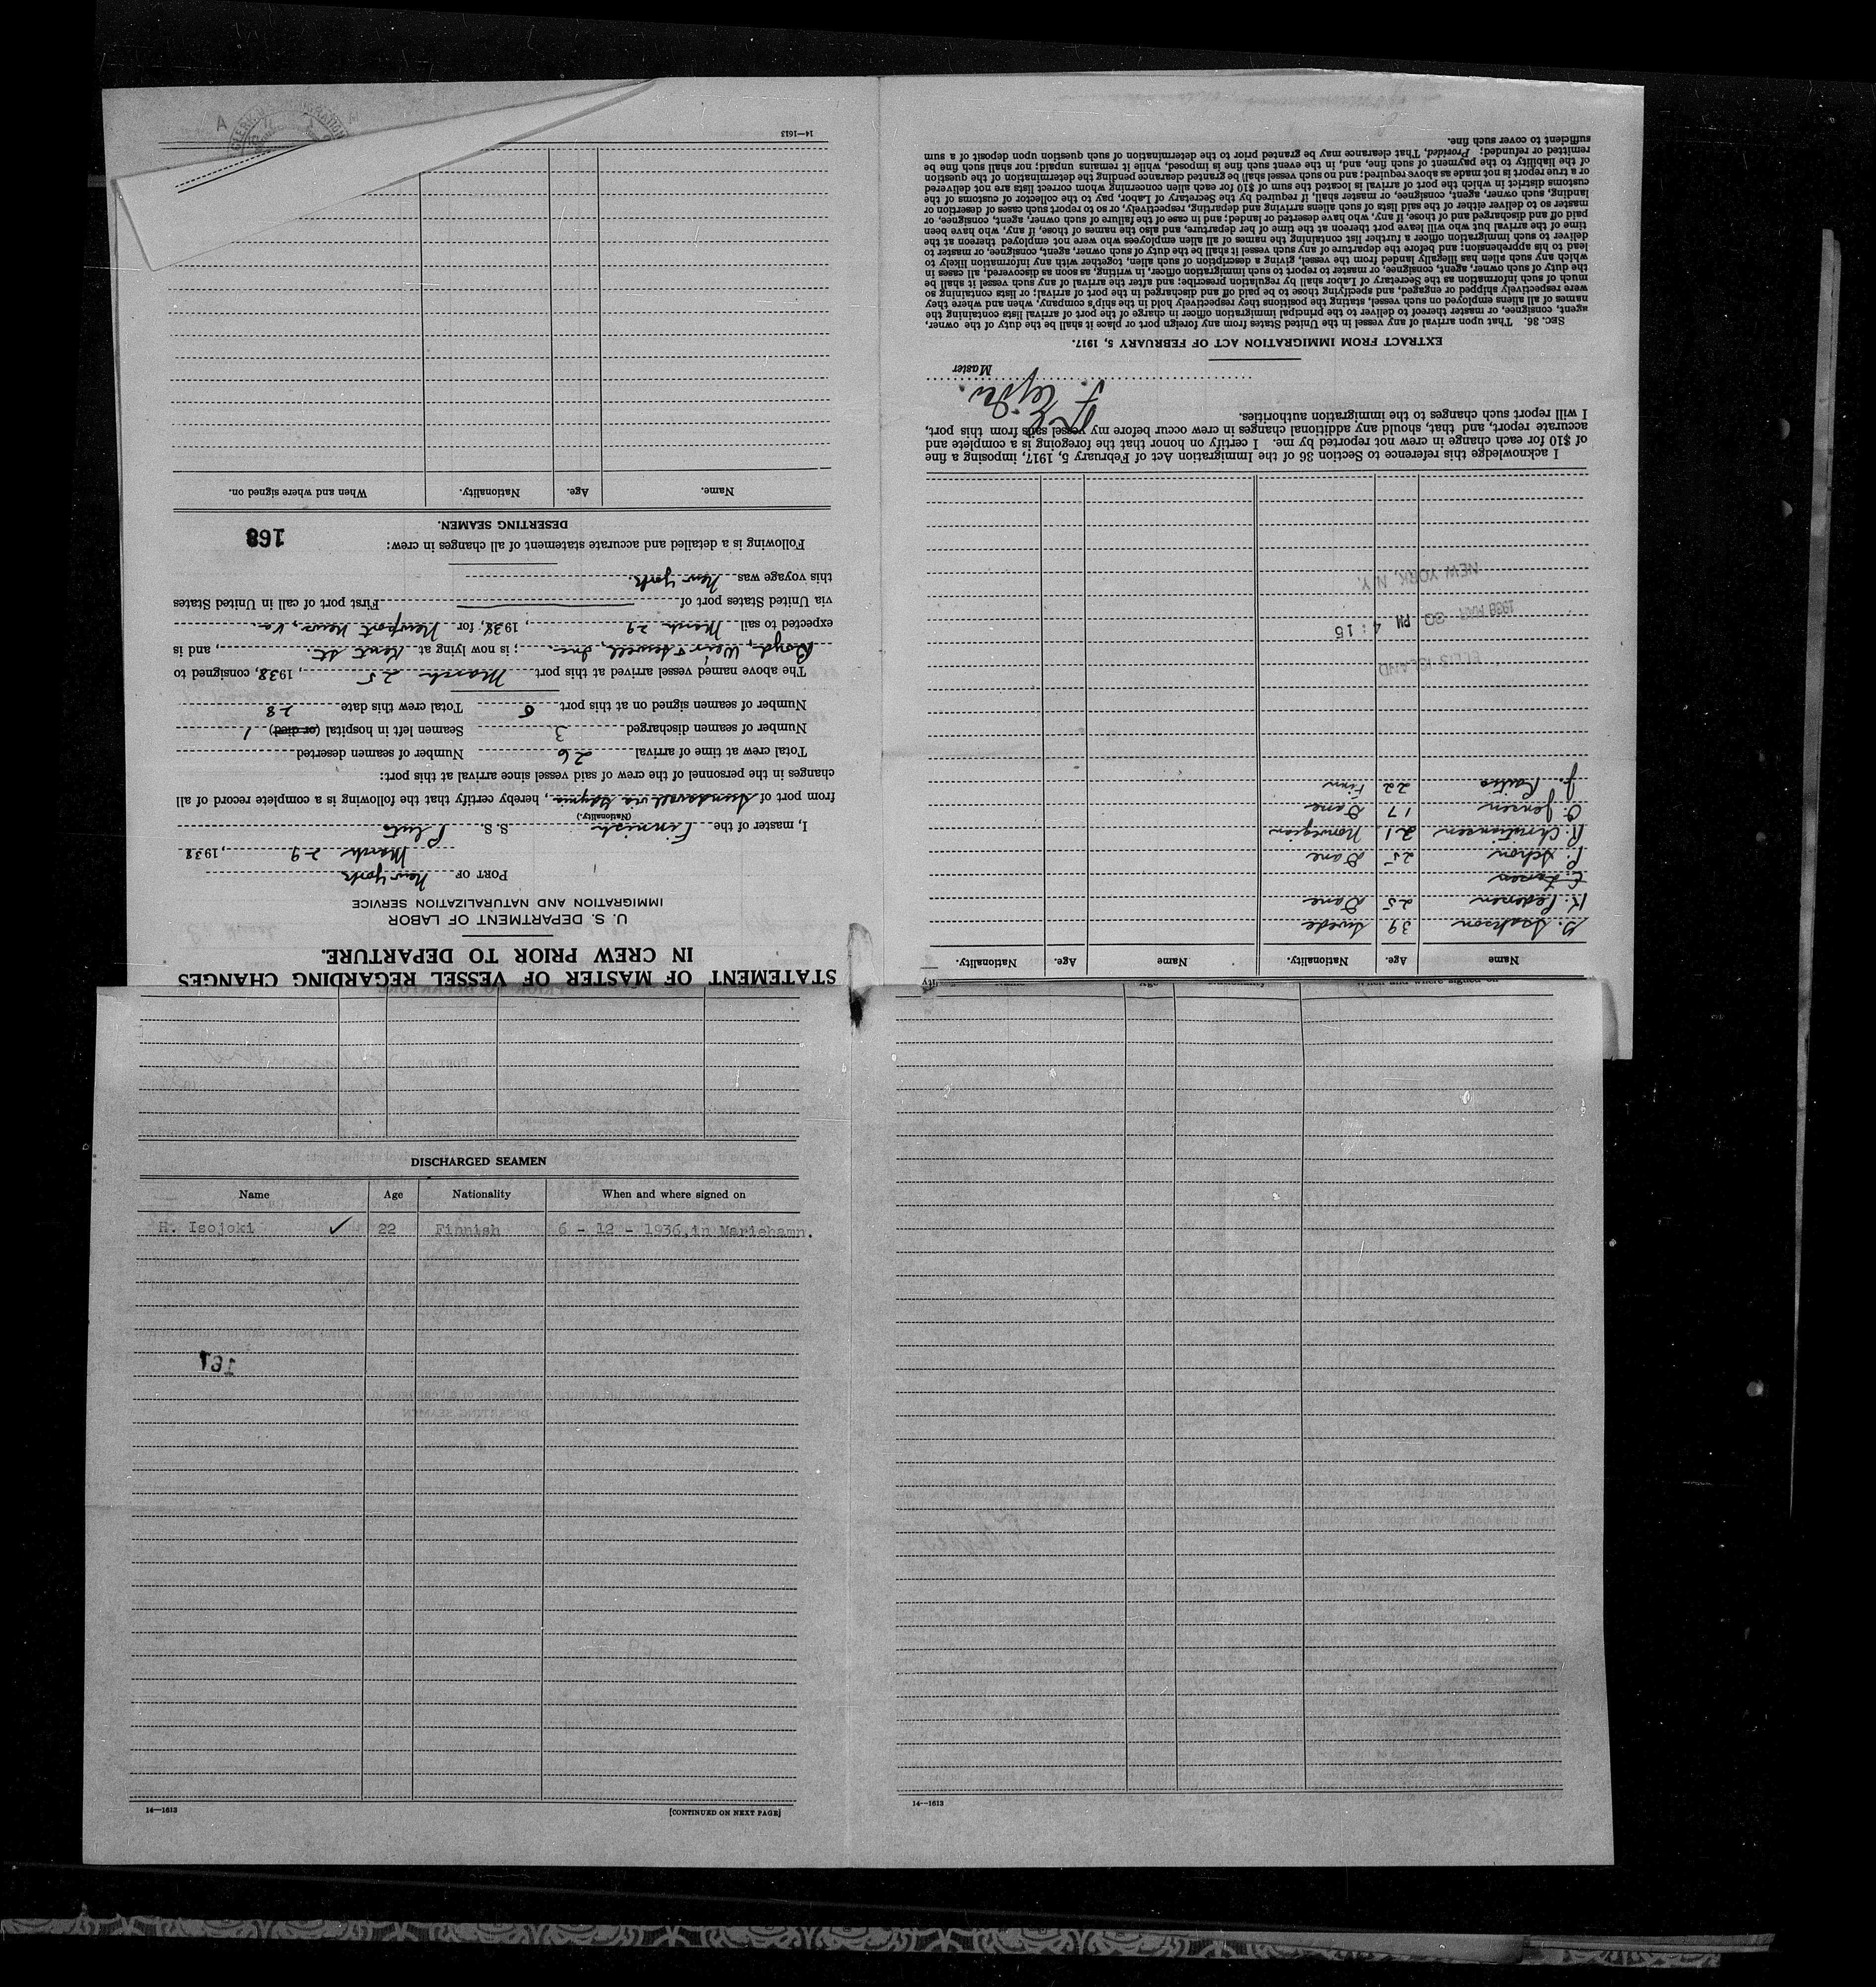 STATEMENT OF MASTER OF VESSEL REGARDING CHANGES
IN CREW PRIOR TO DEPARTURE.
U. S. DEPARTMENT OF LABOR
IMMIGRATION AND NATURALIZATION SERVICE
PORT OF New York
March 29, 1938
I, master of the Finnish S. S. Pluto
(Nationality.)
from port of Sundsvall via Gdynia, hereby certify that the following is a complete record of all
changes in the personnel of the crew of said vessel since arrival at this port:
Total crew at time of arrival 26 Number of seamen deserted
Number of seamen discharged 3 Seamen left in hospital (or died) 1
Number of seamen signed on at this port 6 Total crew this date 28
The above named vessel arrived at this port March 25, 1938, consigned to
Boyd, Weir & Sewell, Inc.; is now lying at Kent St., and is
expected to sail March 29, 1938, for Newport News, Va.
via United States port of First port of call in United States
this voyage was New York.
Following is a detailed and accurate statement of all changes in crew:
168
DESERTING SEAMEN.
Name. Age. Nationality. When and where signed on.
14—1613
Name Age. Nationality. Name Age. Nationality.
Isakson 39 Swede
K. Pedersen 25 Dane
P. Schon 25 Dane
R. Christiansen 21 Norwegian
Jensen 17 Dane
J. 22 Finn
ELLIS ISLAND
1938 MAR 30 PM 4:15
NEW YORK, N.Y.
I acknowledge this reference to Section 36 of the Immigration Act of February 5, 1917, imposing a fine
of $10 for each change in crew not reported by me. I certify on honor that the foregoing is a complete and
accurate report, and that, should any additional changes in crew occur before my vessel sails from this port,
I will report such changes to the immigration authorities.
Master
EXTRACT FROM IMMIGRATION ACT OF FEBRUARY 5, 1917.
SEC. 36. That upon arrival of any vessel in the United States from any foreign port or place it shall be the duty of the owner,
agent, consignee, or master thereof to deliver to the principal immigration officer in charge of the port of arrival lists containing the
names of all aliens employed on such vessel, stating the positions they respectively hold in the ship's company, when and where they
were respectively shipped or engaged, and specifying those to be paid off and discharged in the port of arrival; or lists containing so
much of such information as the Secretary of Labor shall by regulation prescribe; and after the arrival of any such vessel it shall be
the duty of such owner, agent, consignee, or master to report to such immigration officer, in writing, as soon as discovered, all cases in
which any such alien has illegally landed from the vessel, giving a description of such alien, together with any information likely to
lead to his apprehension; and before the departure of any such vessel it shall be the duty of such owner, agent, consignee, or master to
deliver to such immigration officer a further list containing the names of all alien employees who were not employed thereon at the
time of the arrival but who will leave port thereon at the time of her departure, and also the names of those, if any, who have been
paid off and discharged and of those, if any, who have deserted or landed; and in case of the failure of such owner, agent, consignee, or
master so to deliver either of the said lists of such aliens arriving and departing, respectively, or so to report such cases of desertion or
landing, such owner, agent, consignee, or master shall, if required by the Secretary of Labor, pay to the collector of customs of the
customs district in which the port of arrival is located the sum of $10 for each alien concerning whom correct lists are not delivered
or a true report is not made as above required; and no such vessel shall be granted clearance pending the determination of the question
of the liability to the payment of such fine, and, in the event such fine is imposed, while it remains unpaid; nor shall such fine be
remitted or refunded: Provided, That clearance may be granted prior to the determination of such question upon deposit of a sum
sufficient to cover such fine.
DISCHARGED SEAMEN
Name Age Nationality When and where signed on
H. Isojoki ✓ 22 Finnish 6 - 12 - 1936, in Mariehamn.
161
14—1613 [CONTINUED ON NEXT PAGE]
14—1613